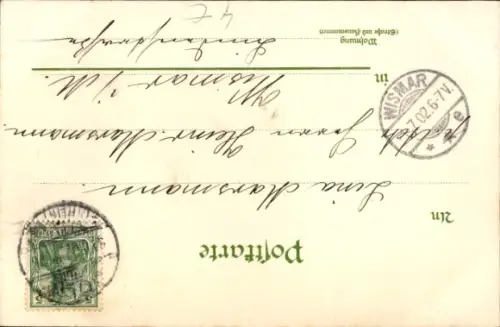 Postkarte
An
Lina Marsmann.
Herrn Heinr. Marsmann
in
Wismar i/M.
Wohnung
(Straße und Hausnummer)
Lindenstraße
WISMAR
7.02.6-7V.
* * e
4 £